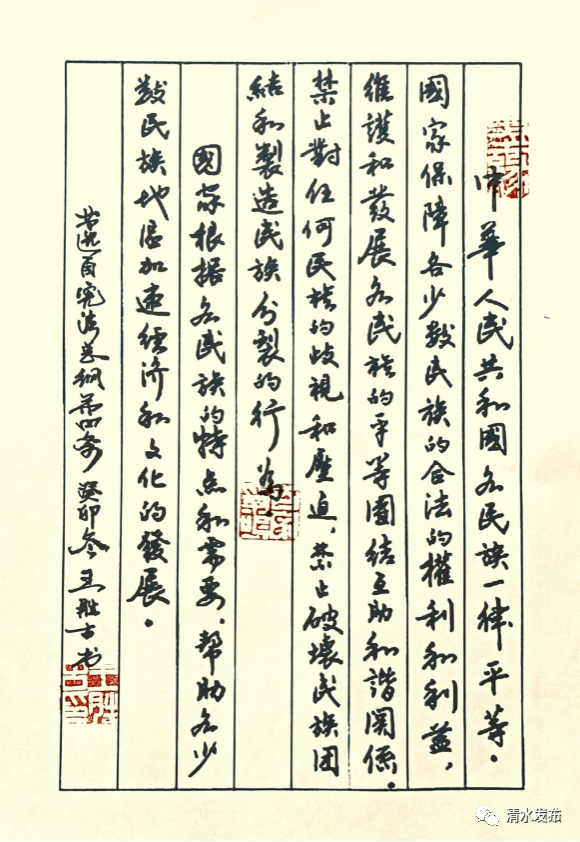 中華人民共和國各民族一律平等。
國家保障各少數民族的合法的權利和利益，
維護和發展各民族的平等團結互助和諧関係。
禁止對任何民族的歧視和壓迫，禁止破壞民族团
結和製造民族分裂的行為。
國家根据各民族的特点和需要，帮助各少
數民族地區加速经济和文化的發展。
节选自宪法总纲第四条 癸卯冬 王胜古书
清水发布